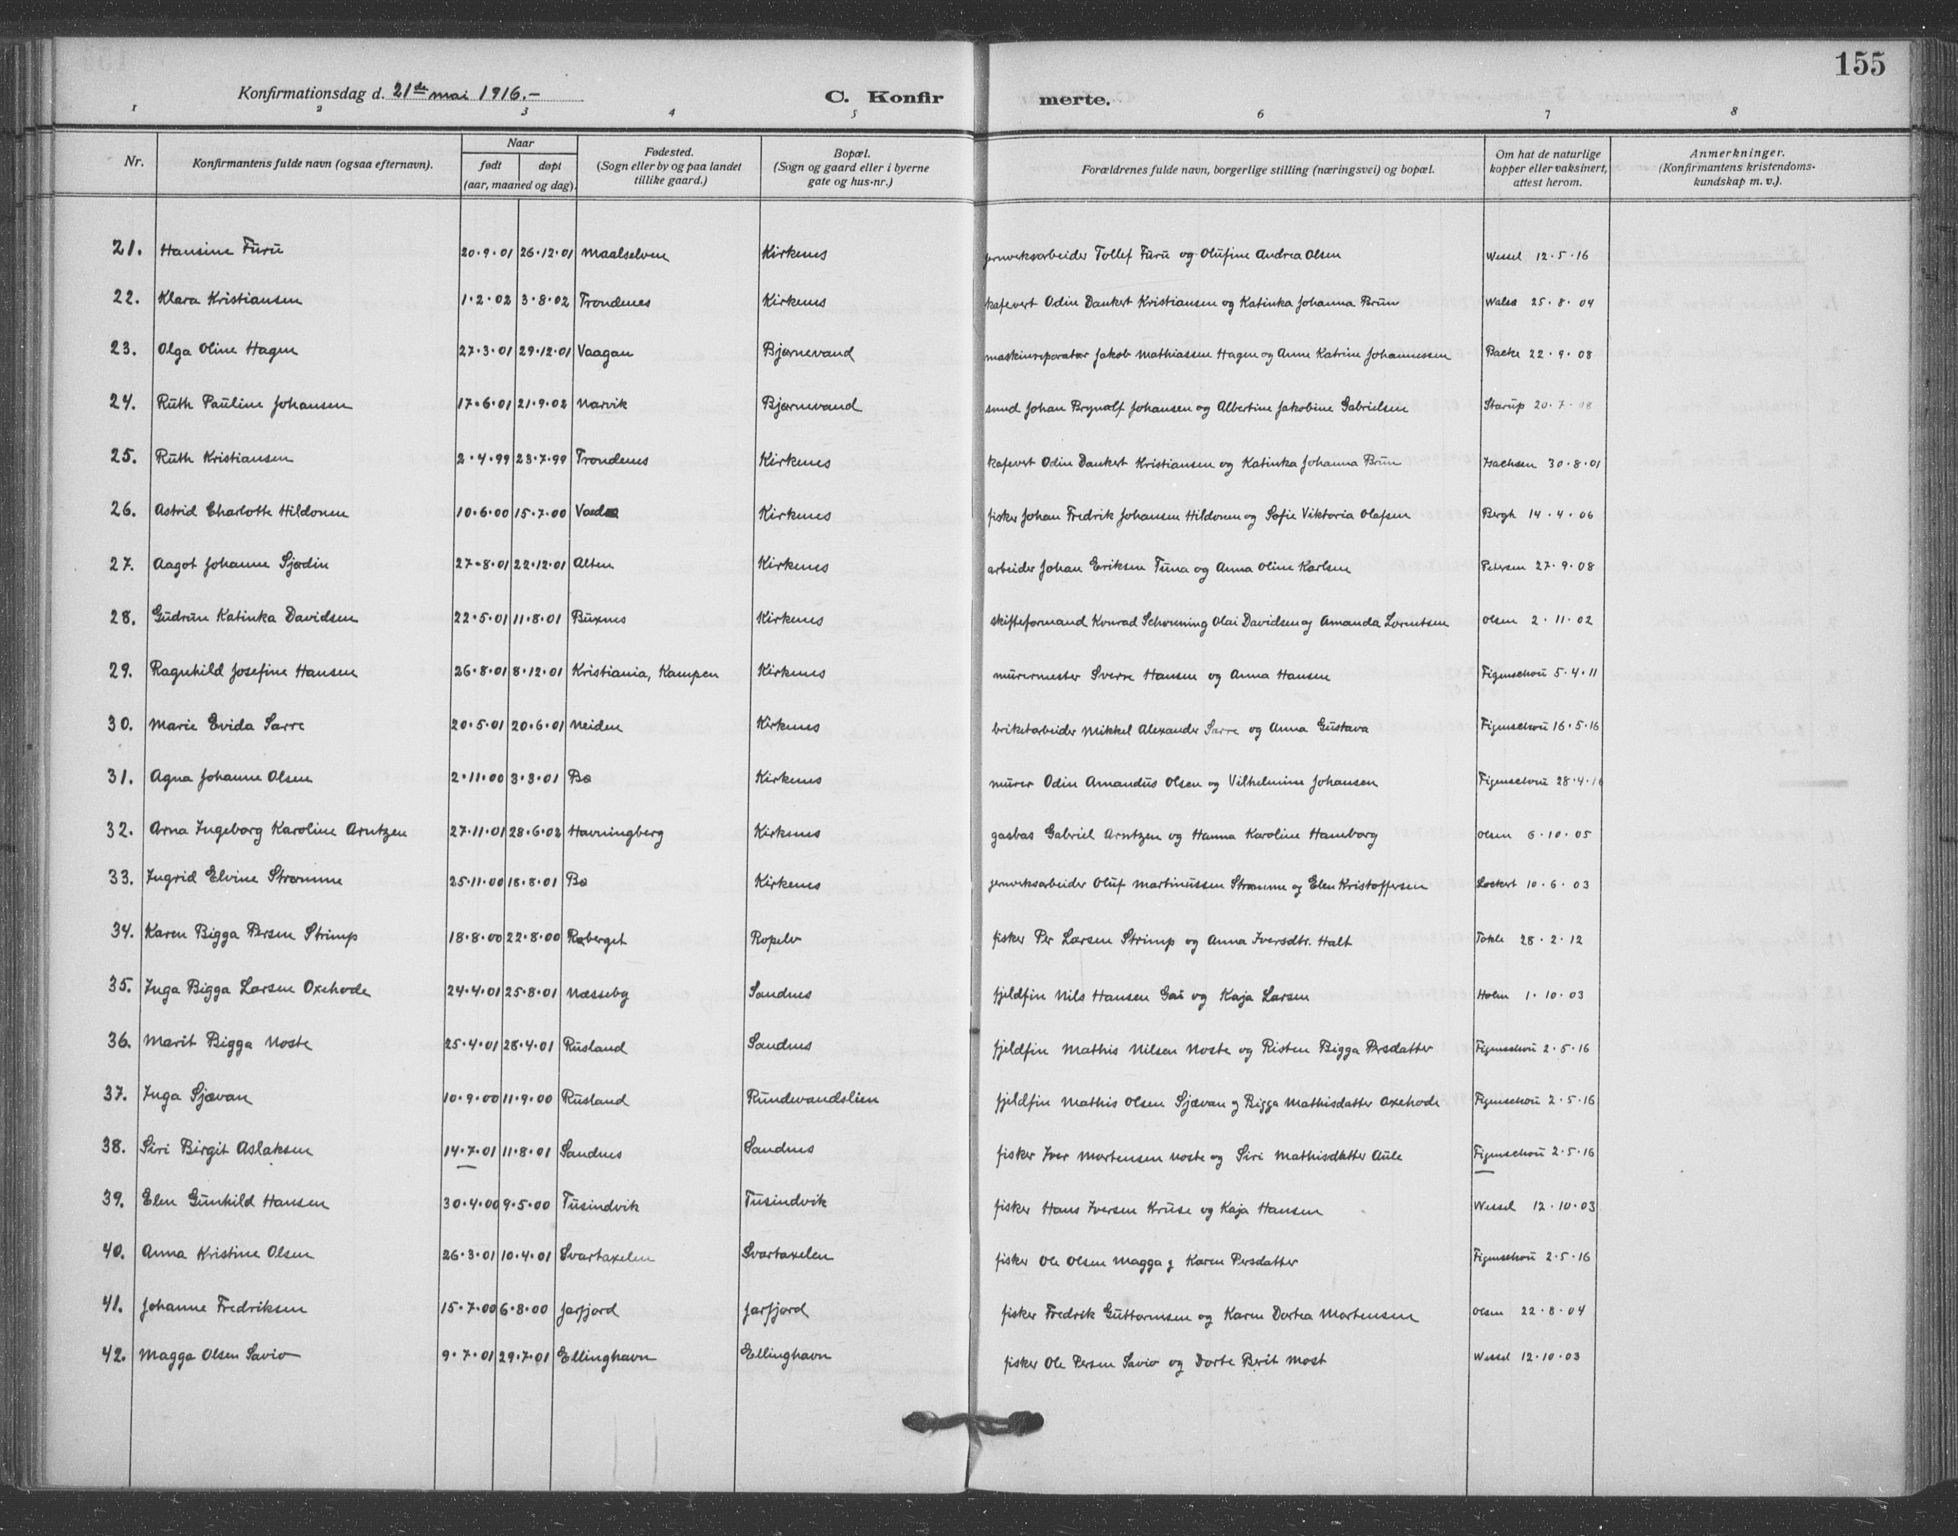 155
Konfirmationsdag d. 21de mai 1916.-
C. Konfirmerte.
1 2 3 4 5 6 7 8
Nr. | Konfirmantens fulde navn (ogsaa efternavn). | Naar født døpt (aar, maaned og dag). | Fødested. (Sogn eller by og paa landet tillike gaard.) | Bopæl. (Sogn og gaard eller i byerne gate og hus-nr.) | Forældrenes fulde navn, borgerlige stilling (næringsvei) og bopæl. | Om hat de naturlige kopper eller vaksinert, attest herom. | Anmerkninger. (Konfirmantens kristendoms-kundskap m. v.).
21. Hansine Furu 20.9.01 26.12.01 Maalselven Kirkenes jernverksarbeider Tollef Furu og Olufine Andrea Olsen Wessel 12.5.16
22. Klara Kristiansen 1.2.02 3.8.02 Trondenes Kirkenes kafevert Odin Dankert Kristiansen og Katinka Johanna Brun 25.8.04
23. Olga Oline Hagen 27.3.01 29.12.01 Vaagan Bjørnevand maskinreparatør Jakob Mathiassen Hagen og Anne Katrine Johannessen Backe 22.9.08
24. Ruth Pauline Johansen 17.6.01 21.9.02 Narvik Bjørnevand smed Johan Brynalf Johansen og Albertine Jakobine Gabrielsen Starup 20.7.08
25. Ruth Kristiansen 2.4.99 23.7.99 Trondenes Kirkenes kafevert Odin Dankert Kristiansen og Katinka Johanna Brun Isachsen 30.8.01
26. Astrid Charlotte Hildonen 10.6.00 15.7.00 Vadsø Kirkenes fisker Johan Fredrik Johansen Hildonen og Sofie Viktoria Olafsen Bergh 14.4.06
27. Aagot Johanne Sjødin 27.8.01 22.12.01 Alten Kirkenes arbeider Johan Eriksen Tuna og Anna Oline Karlsen Petersen 27.9.08
28. Gudrun Katinka Davidsen 22.5.01 11.8.01 Buxnes Kirkenes skifteformand Konrad Schønning Olai Davidsen og Amanda Lorentsen Olsen 2.11.02
29. Ragnhild Josefine Hansen 26.8.01 8.12.01 Kristiania, Kampen Kirkenes murermester Sverre Hansen og Anna Hansen Figenschou 5.4.11
30. Marie Evida Sarre 20.5.01 20.6.01 Neiden Kirkenes briketarbeider Mikkel Alexander Sarre og Anna Gustava Figenschou 16.5.16
31. Agna Johanne Olsen 2.11.00 3.3.01 Bø Kirkenes murer Odin Amandus Olsen og Vilhelmine Johansen Figenschou 28.4.16
32. Arna Ingeborg Karoline Arntzen 27.11.01 28.6.02 Havningberg Kirkenes gasbas Gabriel Arntzen og Hanna Karoline Hamborg Olsen 6.10.05
33. Ingrid Elvine Strømme 25.11.00 18.8.01 Bø Kirkenes jernverksarbeider Oluf Martinussen Strømme og Elen Kristoffersen Lockert 10.6.03
34. Karen Bigga Persen Strimp 18.8.00 22.8.00 Røberget Ropelv fisker Per Larsen Strimp og Anna Iversdtr. Halt Tokle 28.2.12
35. Inga Bigga Larsen Oxehode 24.4.01 25.8.01 Næsseby Sandnes fjeldfin Nils Hansen Gai og Kaja Larsen Holm 1.10.03
36. Marit Bigga Noste 25.4.01 28.4.01 Rusland Sandnes fjeldfin Mathis Nilsen Noste og Risten Bigga Persdatter Figenschou 2.5.16
37. Inga Sjævan 10.9.00 11.9.00 Rusland Rundevandslien fjeldfin Mathis Olsen Sjævan og Bigga Mathisdatter Oxehode Figenschou 2.5.16
38. Siri Birgit Aslaksen 14.7.01 11.8.01 Sandnes Sandnes fisker Iver Mortensen Noste og Siri Mathisdatter Aule Figenschou 2.5.16
39. Elen Gunhild Hansen 30.4.00 9.5.00 Tusindvik Tusindvik fisker Hans Iversen Kruse og Kaja Hansen Wessel 12.10.03
40. Anna Kristine Olsen 26.3.01 10.4.01 Svartaxelen Svartaxelen fisker Ole Olsen Magga g Karen Persdatter Figenschou 2.5.16
41. Johanne Fredriksen 15.7.00 6.8.00 Jarfjord Jarfjord fisker Fredrik Guttormsen og Karen Dortea Mortensen Olsen 22.8.04
42. Magga Olsen Savio 9.7.01 29.7.01 Ellinghavn Ellinghavn fisker Ole Persen Savio og Dorte Berit Most Wessel 12.10.03